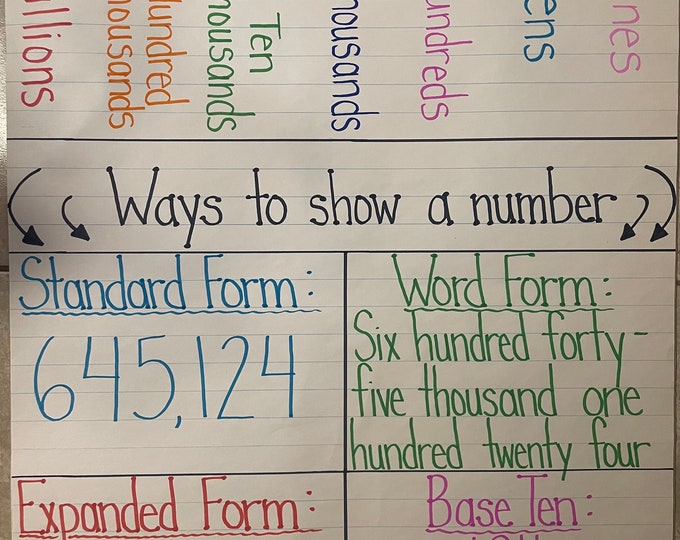 illions
Hundred
housands
Ten
housands
housands
undreds
ens
nes
Ways to show a number
Standard Form:
645,124
Word Form:
Six hundred forty-
five thousand one
hundred twenty four
Expanded Form:
Base Ten: